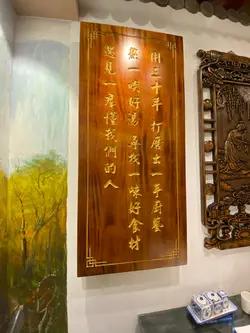 用三十年 打磨出一手廚藝
熬一味好湯 尋找一味好食材
遇見一羣懂我們的人